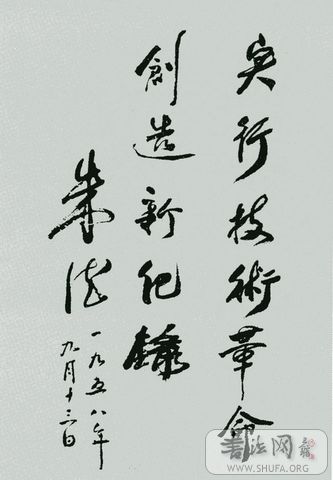 实行技術革命
創造新纪錄
朱德
一九五八年
九月十三日
書法网
WWW.SHUFA.ORG